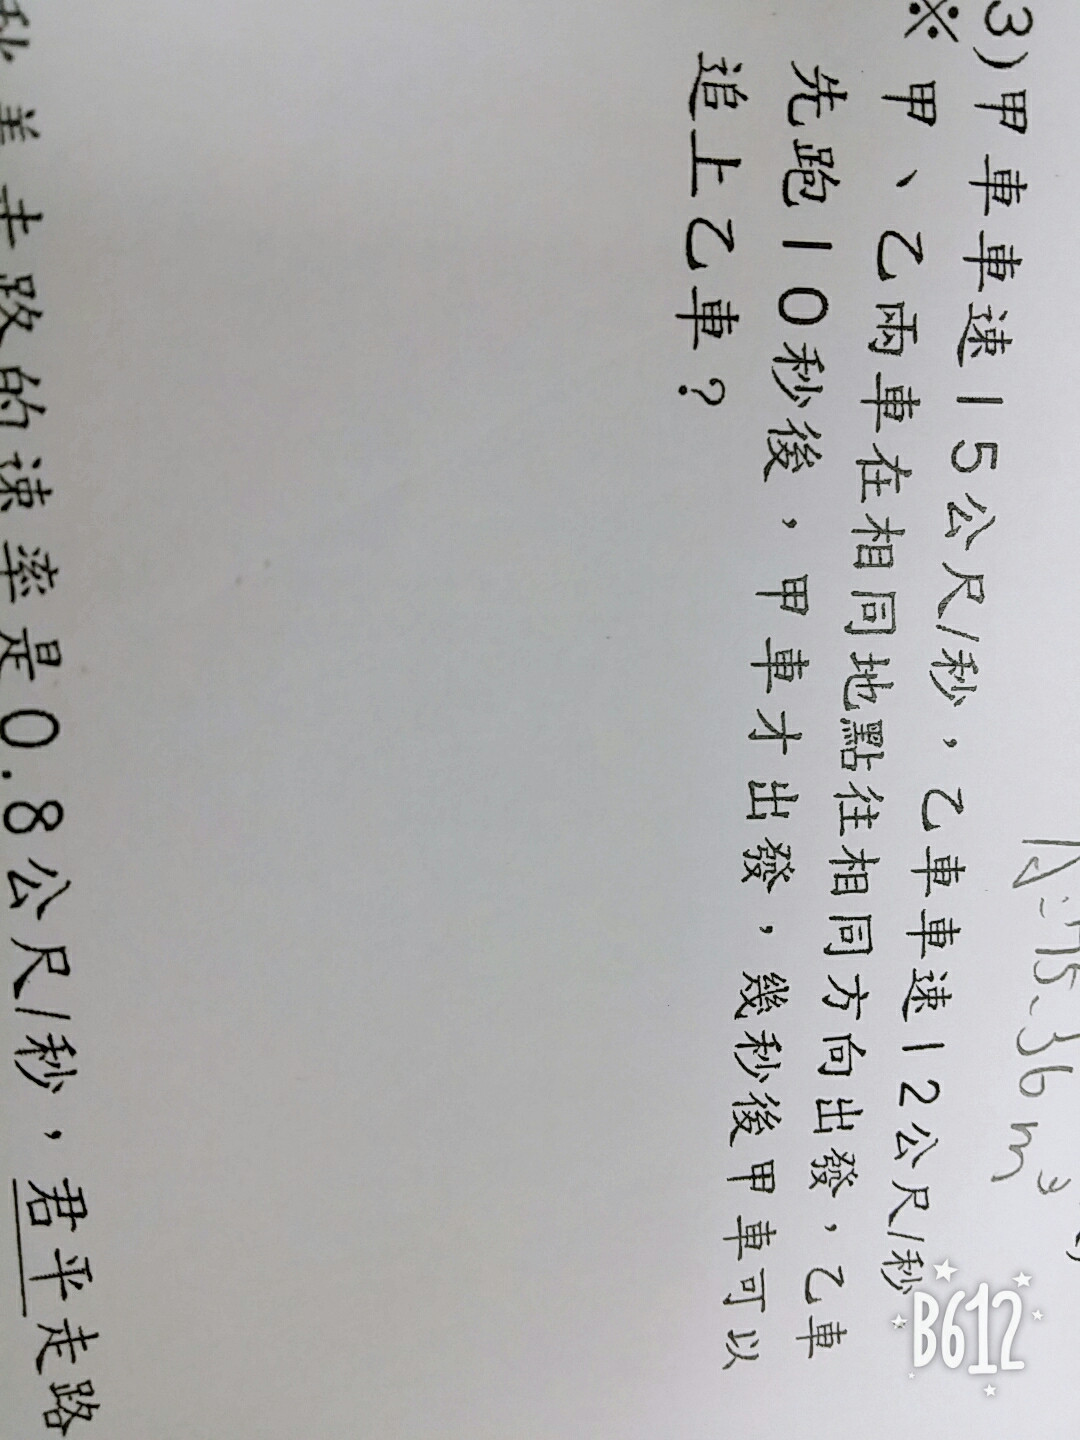 √ 75.36 m³
3)甲車車速15公尺/秒,乙車車速12公尺/秒
※甲、乙兩車在相同地點往相同方向出發,乙車
先跑10秒後,甲車才出發,幾秒後甲車可以
追上乙車?
走路的速率是0.8公尺/秒,君平走路
B612